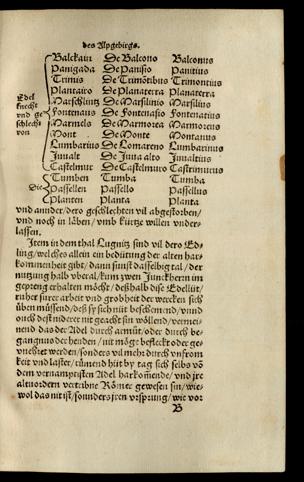 des Alpgebirgs.
Balckaun De Balcono Balconus
Panigada De Panisio Panitius
Trimis De Trimōtibus Trimontius
Plantairo De Planaterra Planaterra
Edel Marschlintz De Marsilinio Marsilius
knecht Fontenaus De Fontenasio Fontenatius
vnd ge Marmels De Marmorea Marmoreus
schlecht Mont De Monte Montanus
von Lumbarins De Lomareno Lumbarinus
Juualt De Juua alto Juualtius
Castelmut De Castelmuro Castrimurus
Tumben Tumba Tumba
Die Passellen Passello Passellus
Planten Planta Planta
vnd annder/dero geschlechten vil abgestorben/
vnd noch in läben/vmb kürtze willen vnder-
lassen.
Item in dem thal Lugnitz sind vil dero Ed-
ling/welches allein ein bedütung der alten har-
kommenheit gibt/dann sunst dasselbig tal/der
nutzung halb vberal/kum zwen Junckherrn im
gepreng erhalten möcht/deßhalb dise Edellüt/
ruher surer arbeit vnd grobheit der wercken sich
üben müssend/deß sy sich nüt beschemend/vnnd
noch destminder nit geacht sin wöllend/vermei-
nend das der Adel durch armůt/oder durch be-
gangnus der henden/nit mög befleckt oder ge-
vnehret werden/sonders vil mehr durch vnfrom
keit vnd laster/tůmend hüt by tag sich selbs vō
dem vernamptisten Adel harkomēde/vnd jre
altuordern vertribne Römer gewesen sin/wie-
wol das nit ist/sonnders jren vrsprung/wie vor
B